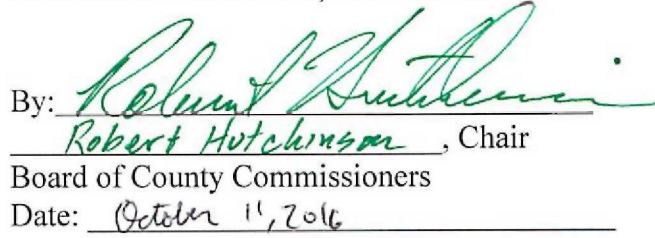 By: Robert Hutchinson
Robert Hutchinson, Chair
Board of County Commissioners
Date: October 11, 2016